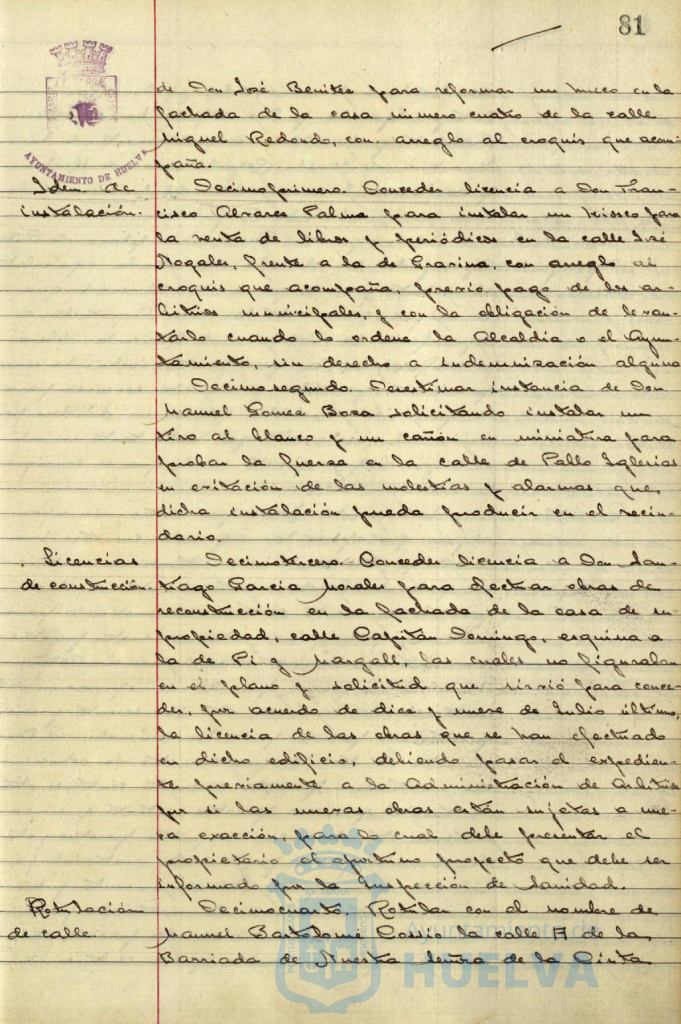 81
AYUNTAMIENTO DE HUELVA
de Don José Benitez para reformar un hueco en la
fachada de la casa número cuatro de la calle
Miguel Redondo, con arreglo al croquis que acom-
paña.
Idem. de
instalación.
Decimoprimero. Conceder licencia a Don Fran-
cisco Alvarez Palma para instalar un kiosco para
la venta de libros y periódicos en la calle José
Nogales, frente a la de Gravina, con arreglo al
croquis que acompaña, previo pago de los ar-
bitrios municipales, y con la obligación de levan-
tarlo cuando lo ordene la Alcaldía o el Ayun-
tamiento, sin derecho a indemnización alguna
Decimosegundo. Desestimar instancia de Don
Manuel Gomez Boza solicitando instalar un
tiro al blanco y un cañón en miniatura para
probar la fuerza en la calle de Pablo Iglesias
en evitación de las molestias y alarmas que
dicha instalación pueda producir en el vecin-
dario.
Licencias
de construcción.
Decimotercero. Conceder licencia a Don San-
tiago García Morales para efectuar obras de
reconstrucción en la fachada de la casa de su
propiedad, calle Capitán Domingo, esquina a
la de Pi y Margall, las cuales no figuraban
en el plano y solicitud que sirvió para conce-
der, por acuerdo de diez y nueve de Julio último,
la licencia de las obras que se han efectuado
en dicho edificio, debiendo pasar el expedien-
te previamente a la Administración de Arbitrios
por si las nuevas obras están sujetas a nue-
va exacción, para lo cual debe presentar el
propietario el oportuno proyecto que debe ser
informado por la Inspección de Sanidad.
Rotulación
de calle.
Decimocuarto. Rotular con el nombre de
Manuel Bartolomé Cossío la calle A de la
Barriada de Nuestra Señora de la Cinta
Ayuntamiento de
HUELVA